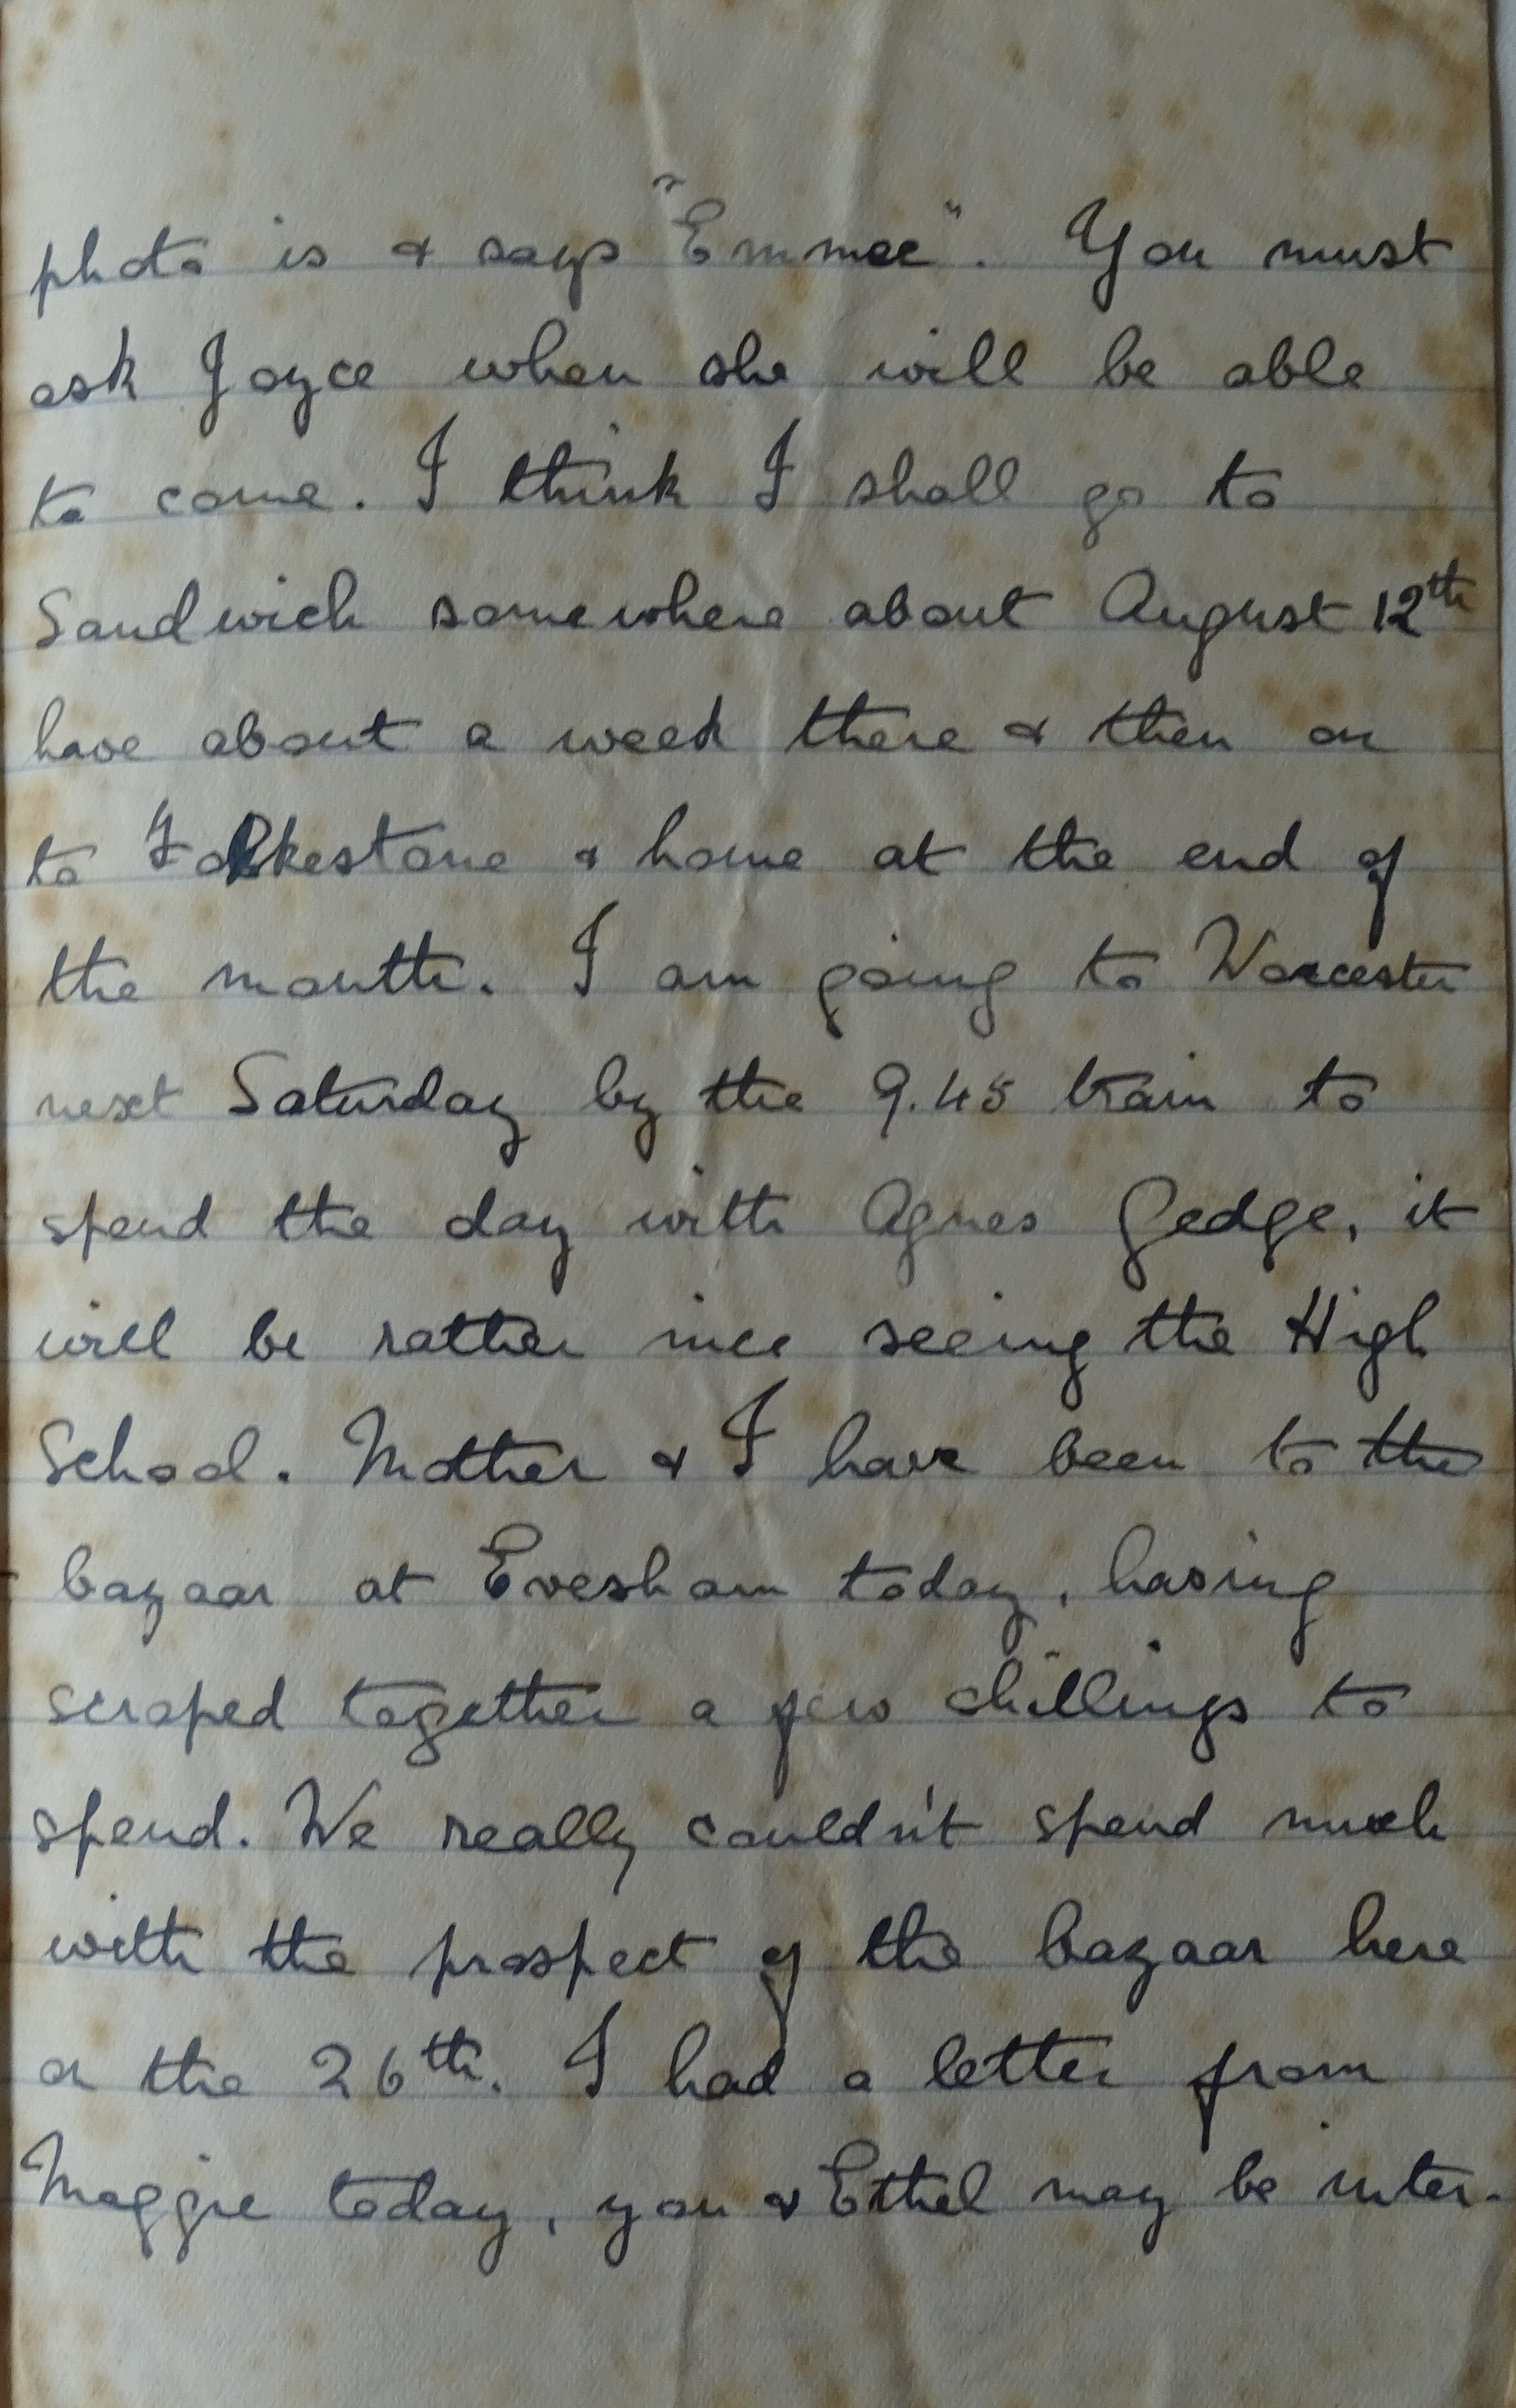 photo is & says "Emmee". You must
ask Joyce when she will be able
to come. I think I shall go to
Sandwich somewhere about August 12th
have about a week there & then on
to Folkestone & home at the end of
the month. I am going to Worcester
next Saturday by the 9.45 train to
spend the day with Agnes Gedge, it
will be rather nice seeing the High
School. Mother & I have been to the
bazaar at Evesham today, having
scraped together a few shillings to
spend. We really couldn't spend much
with the prospect of the bazaar here
on the 26th. I had a letter from
Maggie today, you & Ethel may be inter-